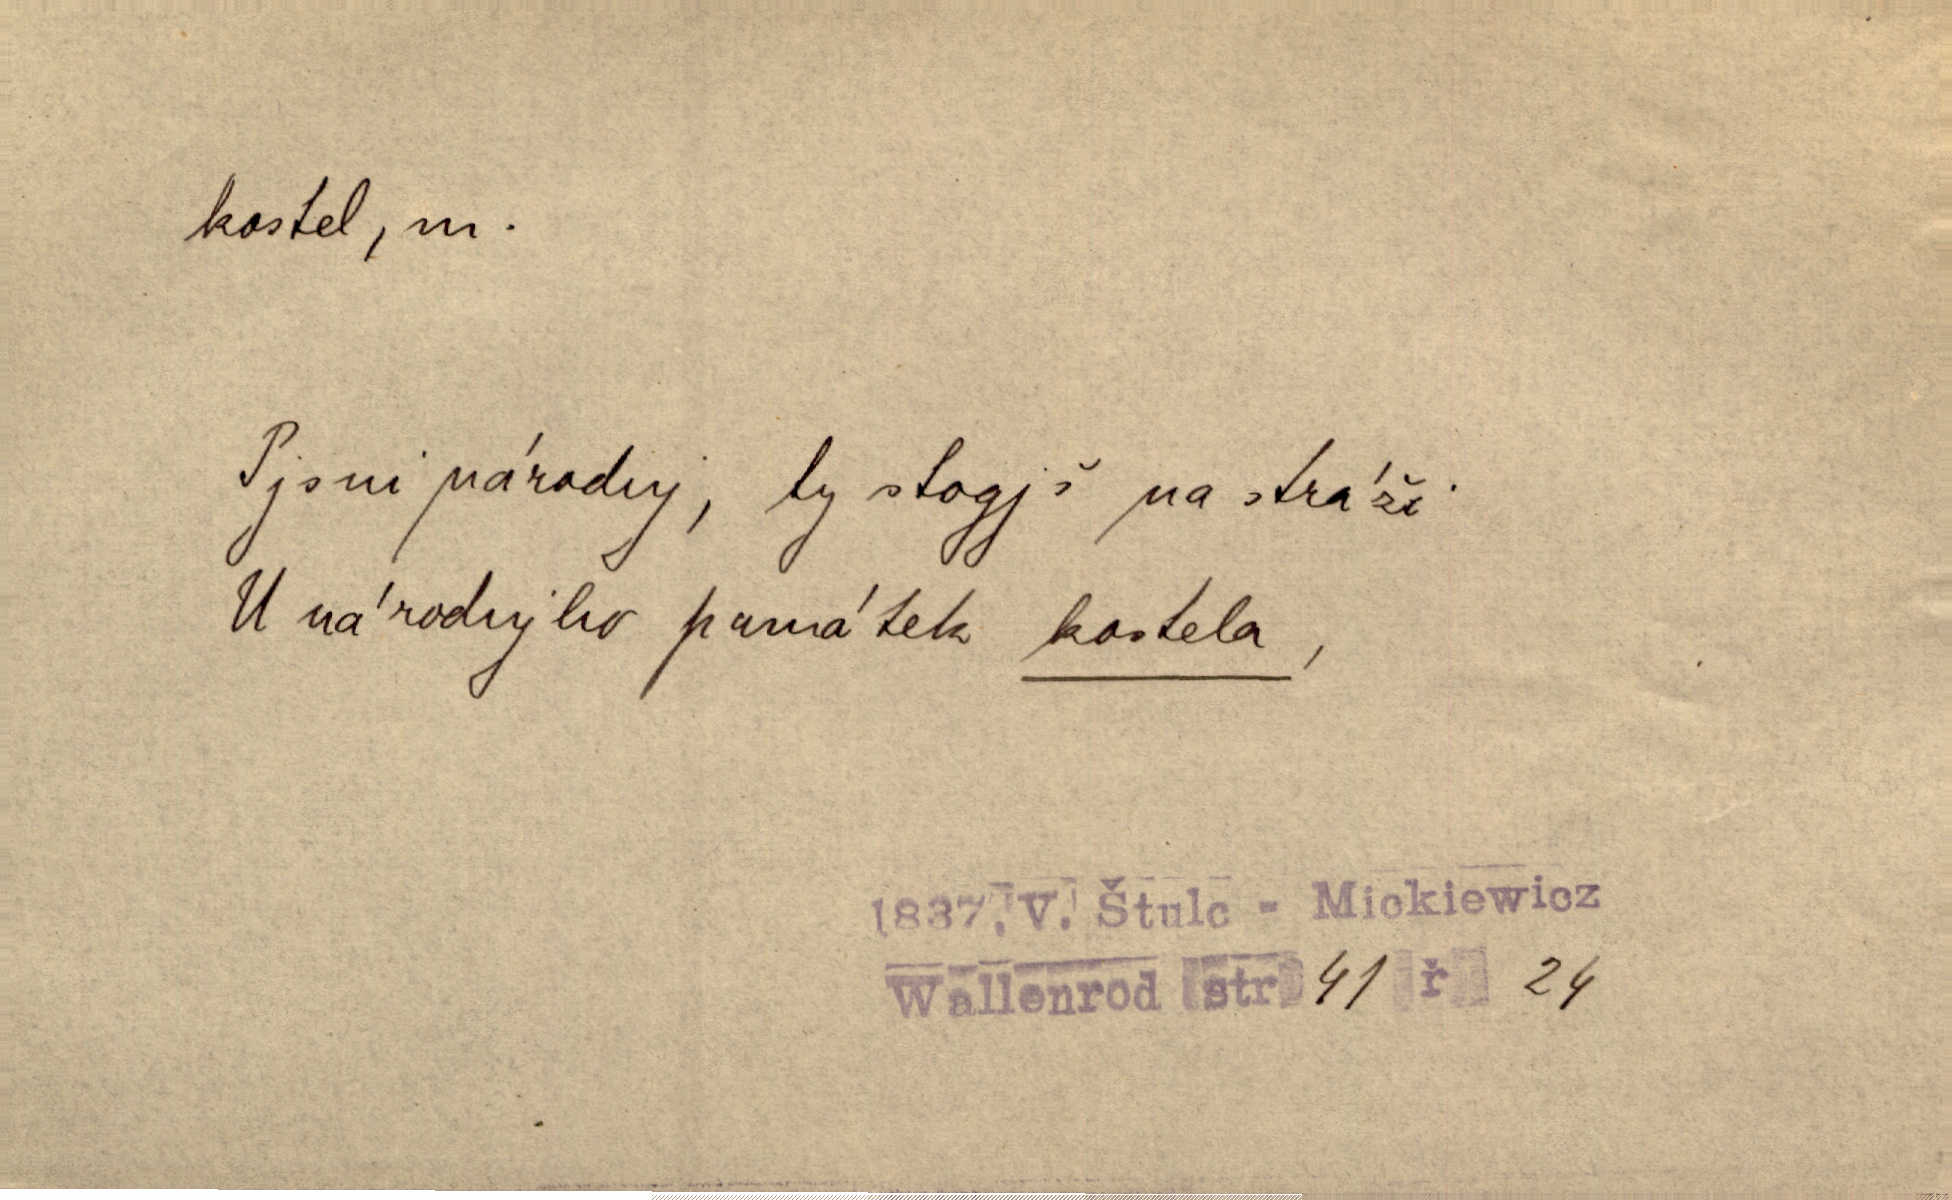 kostel, m.
Pjsni národnj, ty stogjš na stráži
U národnjho památek kostela,
1837. V. Štulc - Mickiewicz
Wallenrod str 41 ř 24